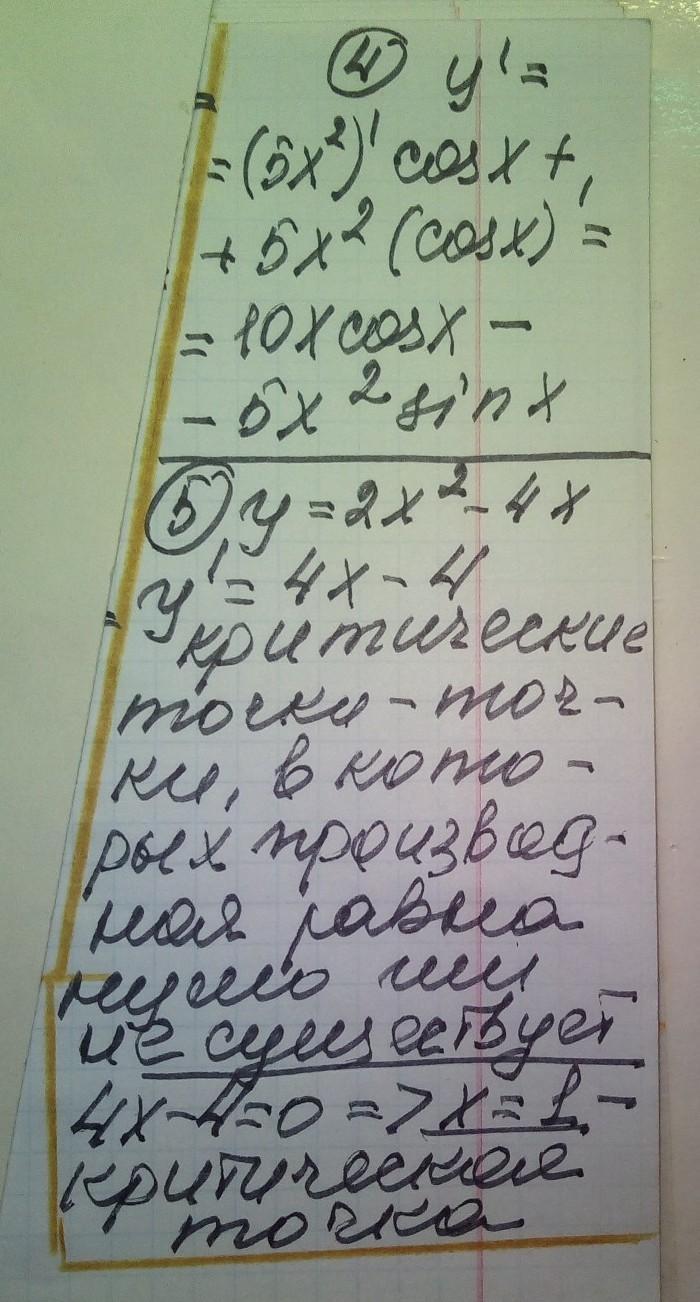 ④ y' =
= (5x²)' cosx +
+ 5x² (cosx)' =
= 10x cosx −
− 5x² sin x
⑤ y = 2x² - 4x
y' = 4x - 4
критические
точки - точ-
ки, в кото-
рых производ-
ная равна
нулю или
не существует
4x-4=0 => x=1 -
критическая
точка